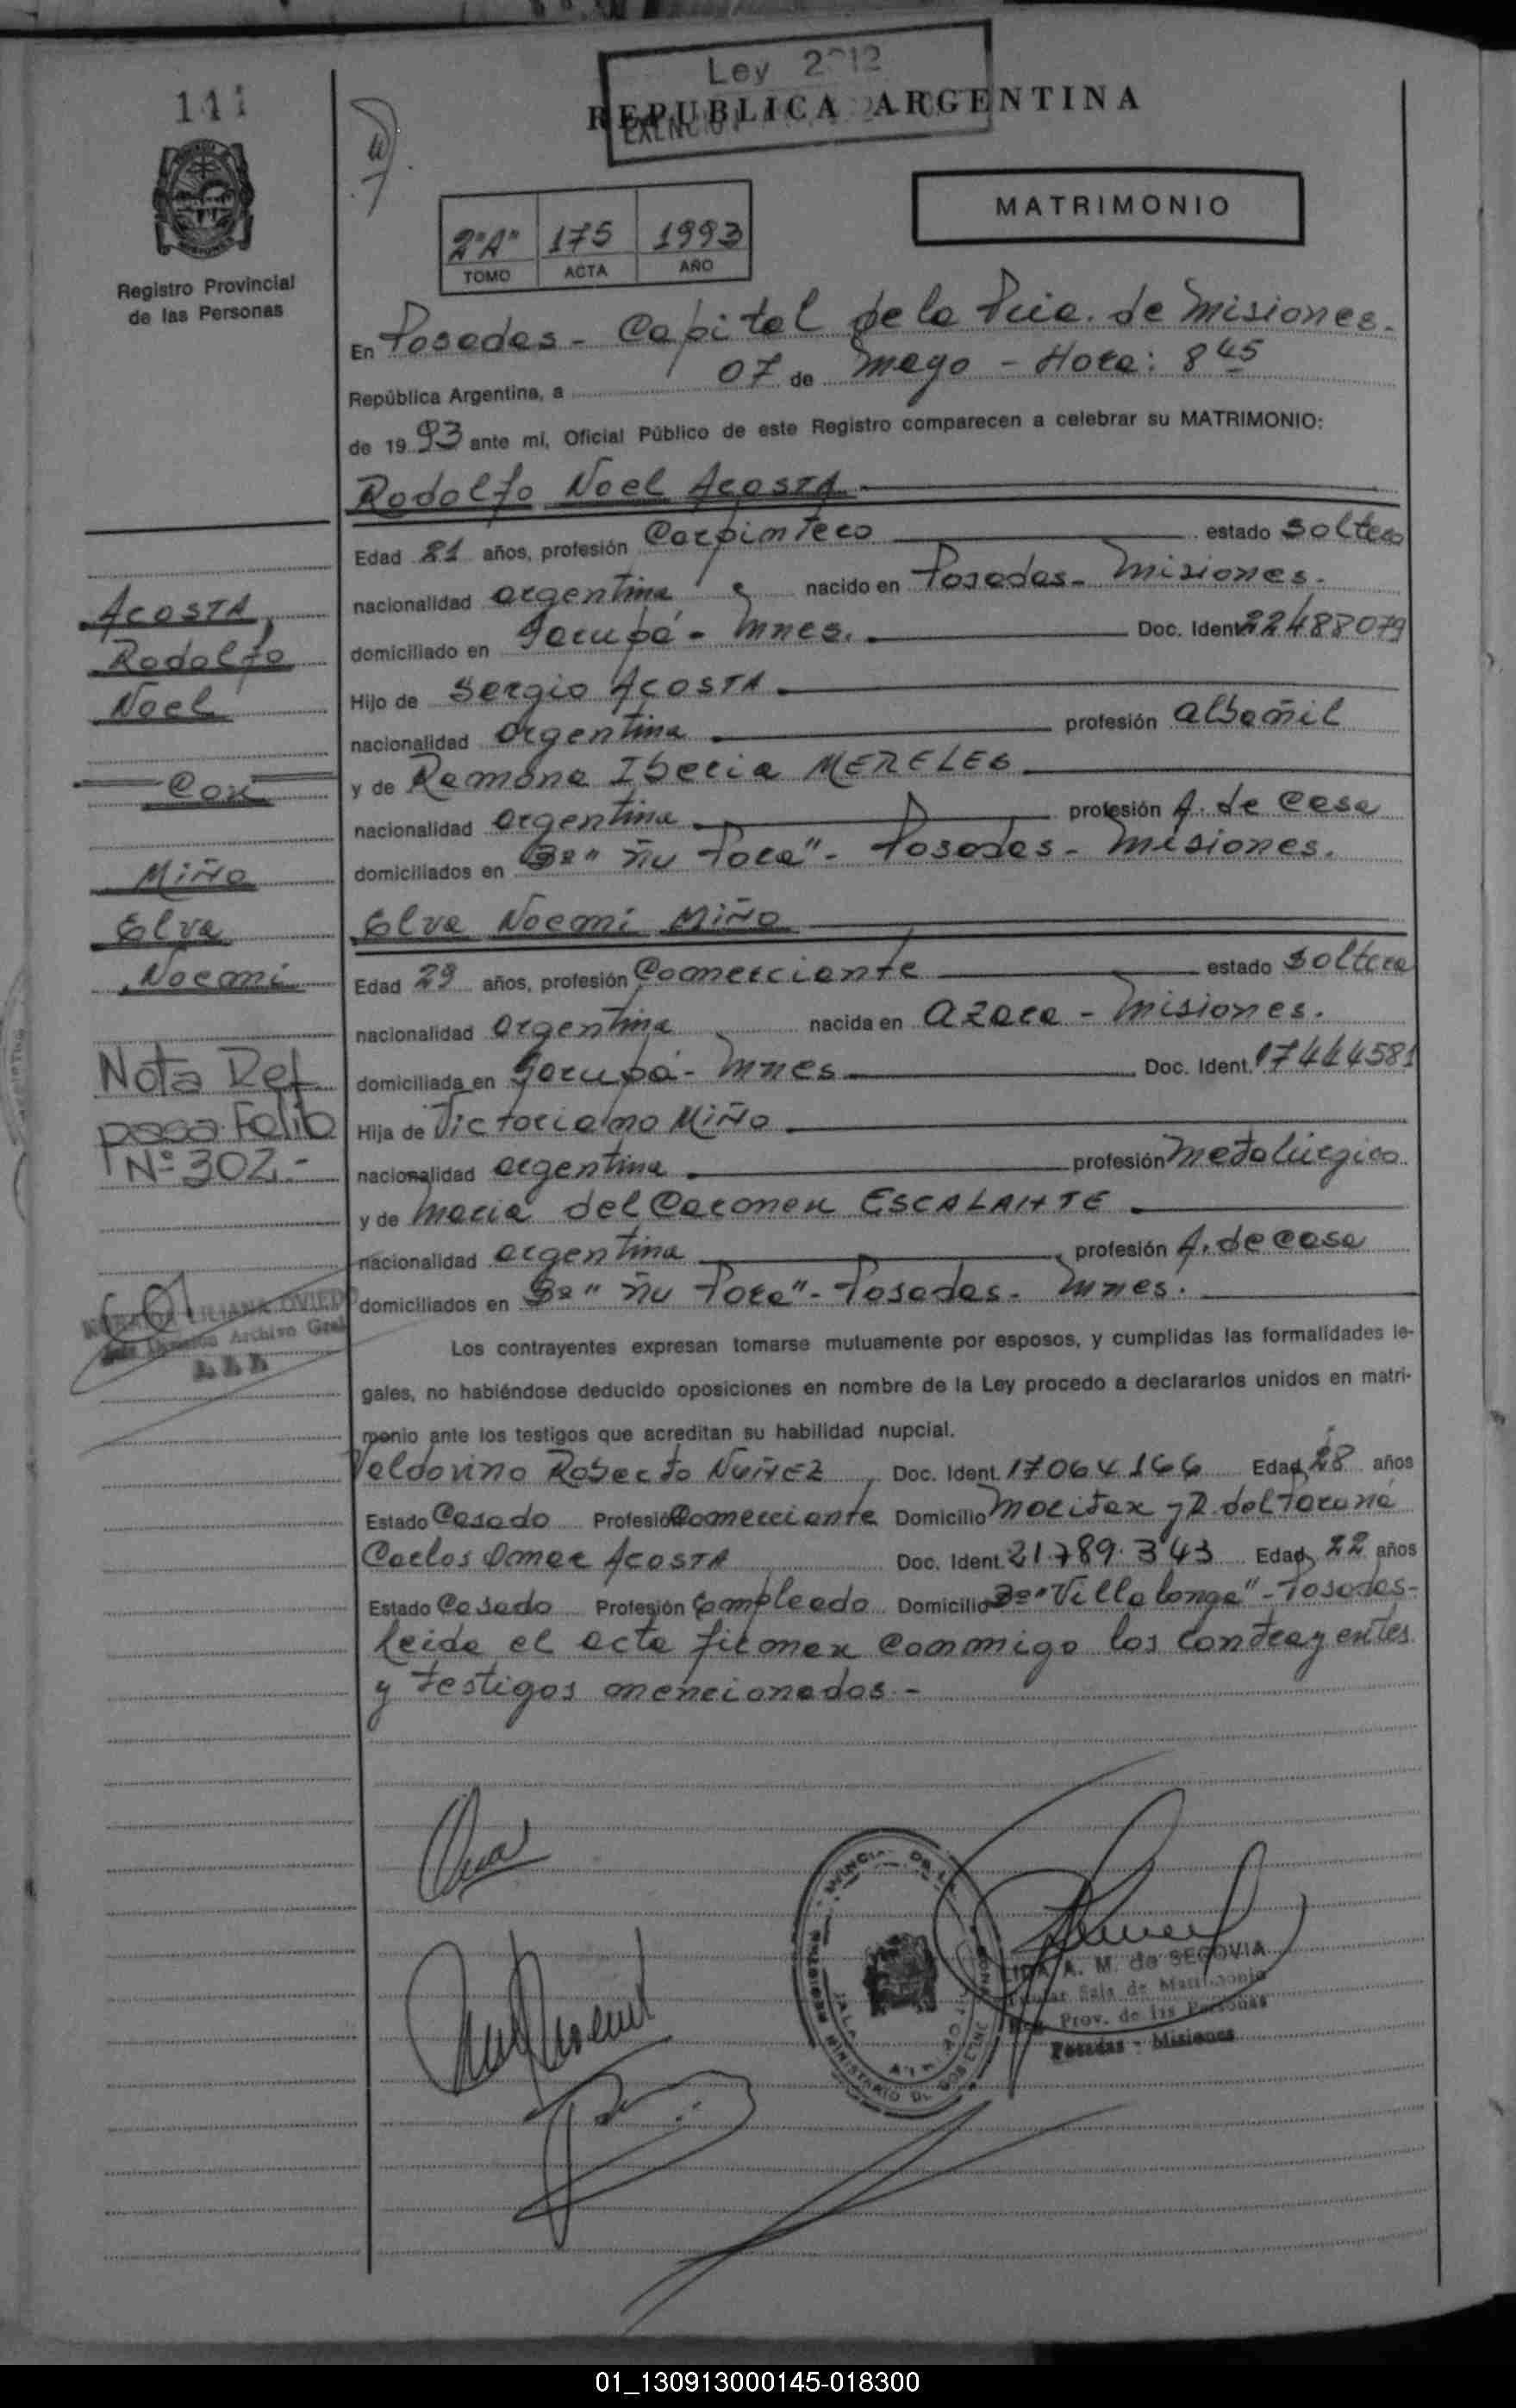 Ley 2212
141
REPUBLICA ARGENTINA
EXENCION
MATRIMONIO
2"A" 175 1993
TOMO ACTA AÑO
Registro Provincial
de las Personas
En Posadas - Capital de la Pcia. de Misiones.
República Argentina, a 07 de Mayo - Hora: 8 45
de 19 93 ante mi, Oficial Público de este Registro comparecen a celebrar su MATRIMONIO:
Rodolfo Noel ACOSTA
Edad 21 años, profesión Carpintero estado soltero
nacionalidad argentina nacido en Posadas - Misiones.
domiciliado en Garupá - Mnes. Doc. Ident. 22488079
Hijo de Sergio ACOSTA
nacionalidad argentina profesión albañil
y de Ramona Iberia MERELES
nacionalidad argentina profesión A. de casa
domiciliados en Bº "Ñu Pora" - Posadas - Misiones.
Elva Noemi MIÑO
Edad 29 años, profesión Comerciante estado soltera
nacionalidad argentina nacida en Azara - Misiones.
domiciliada en Garupá - Mnes Doc. Ident. 17444581
Hija de Victoriano MIÑO
nacionalidad argentina profesión Metalúrgico
y de Maria del Carmen ESCALANTE
nacionalidad argentina profesión A. de casa
domiciliados en Bº "Ñu Pora" - Posadas - Mnes.
Los contrayentes expresan tomarse mutuamente por esposos, y cumplidas las formalidades le-
gales, no habiéndose deducido oposiciones en nombre de la Ley procedo a declararlos unidos en matri-
monio ante los testigos que acreditan su habilidad nupcial.
Valdovino Roberto NUÑEZ Doc. Ident. 17064166 Edad 28 años
Estado Casado Profesión Comerciante Domicilio
Carlos Omar ACOSTA Doc. Ident. 21.789.343 Edad 22 años
Estado Casado Profesión Empleado Domicilio Bº "Villalonga" - Posadas-
Leida el acta firman conmigo los contrayentes
y testigos mencionados.-
ACOSTA,
Rodolfo
Noel
Con
MIÑO
Elva
Noemi
Nota Ref.
pasa Folio
Nº 302.-
LILIANA OVIEDO
Archivo Gral
A. M. de SEGOVIA
Sala de Matrimonio
Prov. de las Personas
Posadas - Misiones
01_130913000145-018300